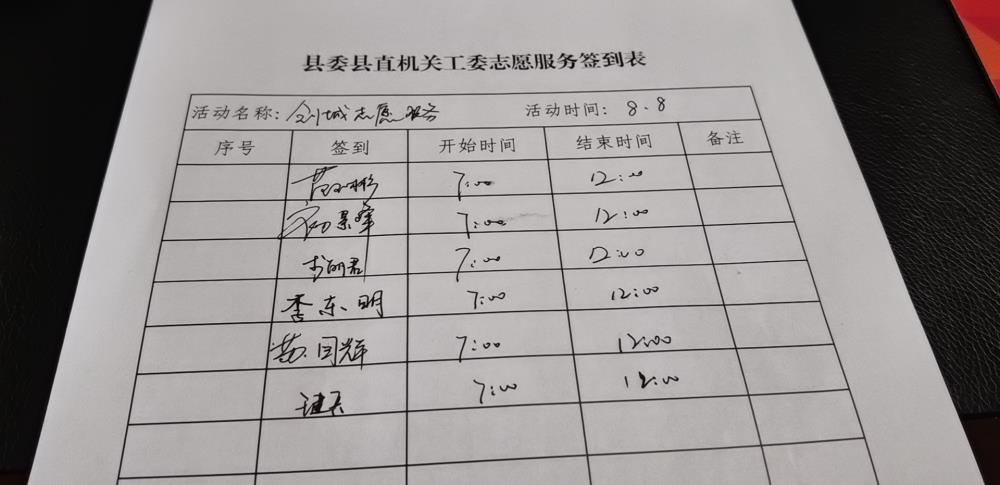 县委县直机关工委志愿服务签到表
活动名称：创城志愿服务 活动时间：8.8
序号 签到 开始时间 结束时间 备注
7:00 12:00
景峰 7:00 12:00
7:00 12:00
李东明 7:00 12:00
黄同辉 7:00 12:00
7:00 12:00